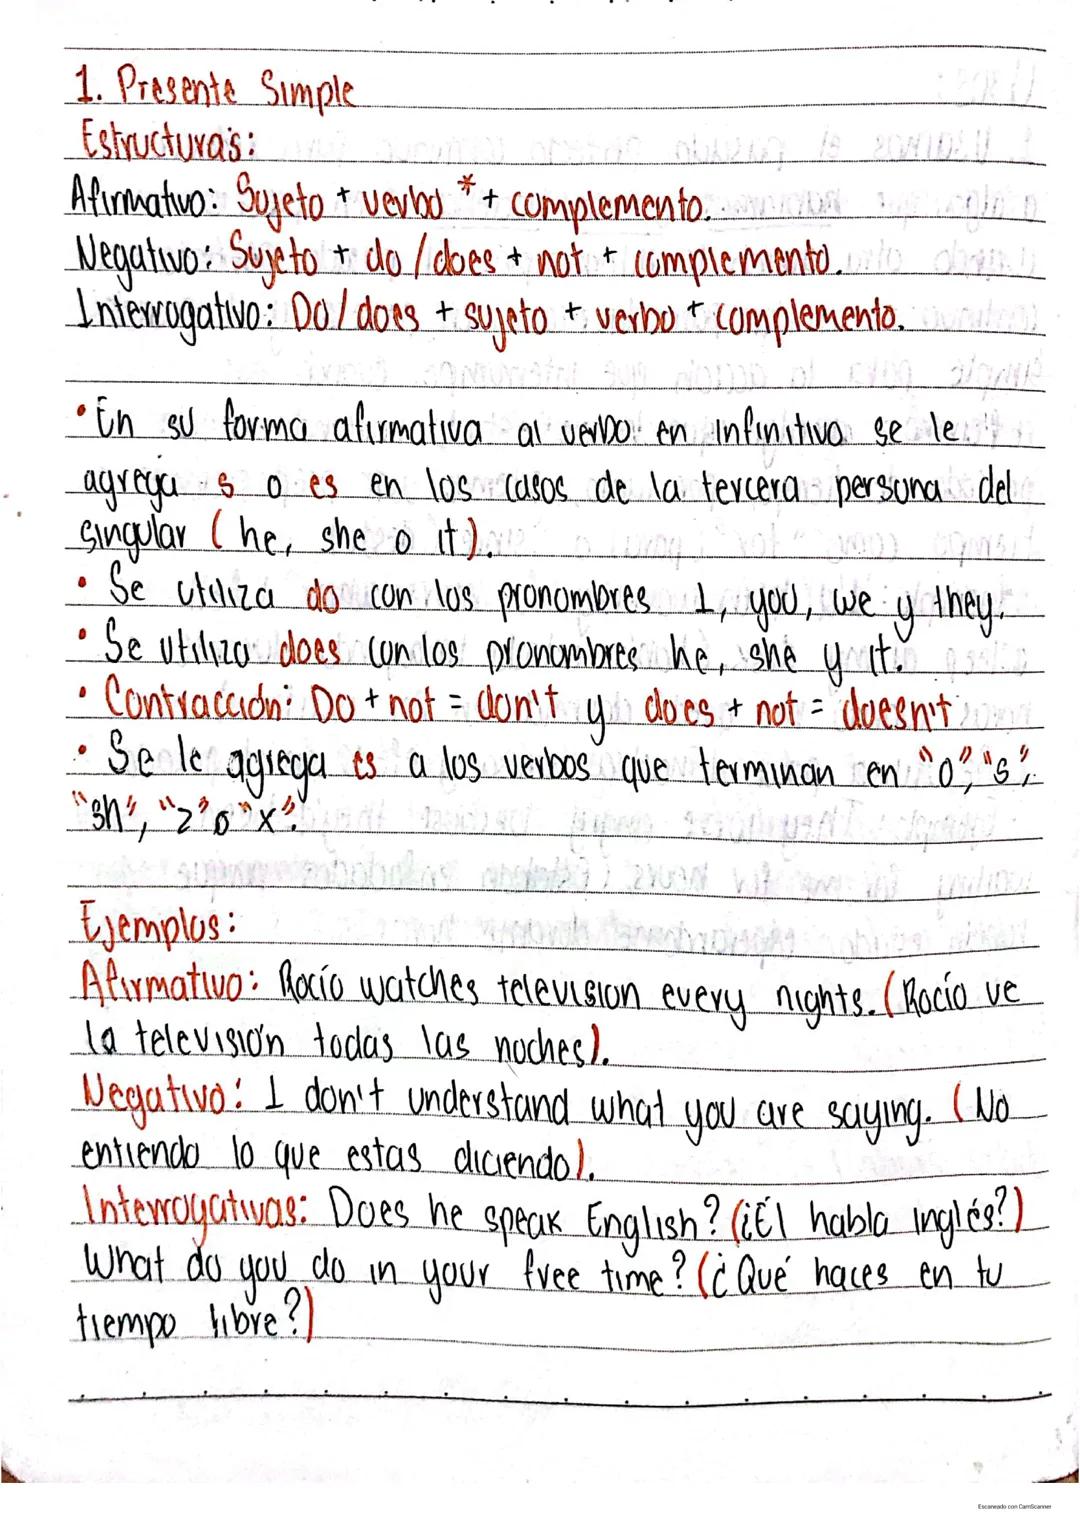 1. Presente Simple
Estructuras:
Afirmativo: Sujeto + verbo * + complemento.
Negativo: Sujeto + do / does + not + complemento.
Interrogativo: Do / does + sujeto + verbo + complemento.
• En su forma afirmativa al verbo en infinitivo se le
agrega s o es en los casos de la tercera persona del
singular ( he, she o it ).
• Se utiliza do con los pronombres I, you, we y they.
• Se utiliza does con los pronombres he, she y it.
• Contracción: Do + not = don't y does + not = doesn't
• Se le agrega es a los verbos que terminan en "o", "s",
"sh", "z" o "x".
Ejemplos:
Afirmativo: Rocío watches television every nights. ( Rocío ve
la televisión todas las noches ).
Negativo: I don't understand what you are saying. ( No
entiendo lo que estas diciendo ).
Interrogativas: Does he speak English? (¿Él habla inglés?)
What do you do in your free time? (¿Qué haces en tu
tiempo libre?)
Escaneado con CamScanner